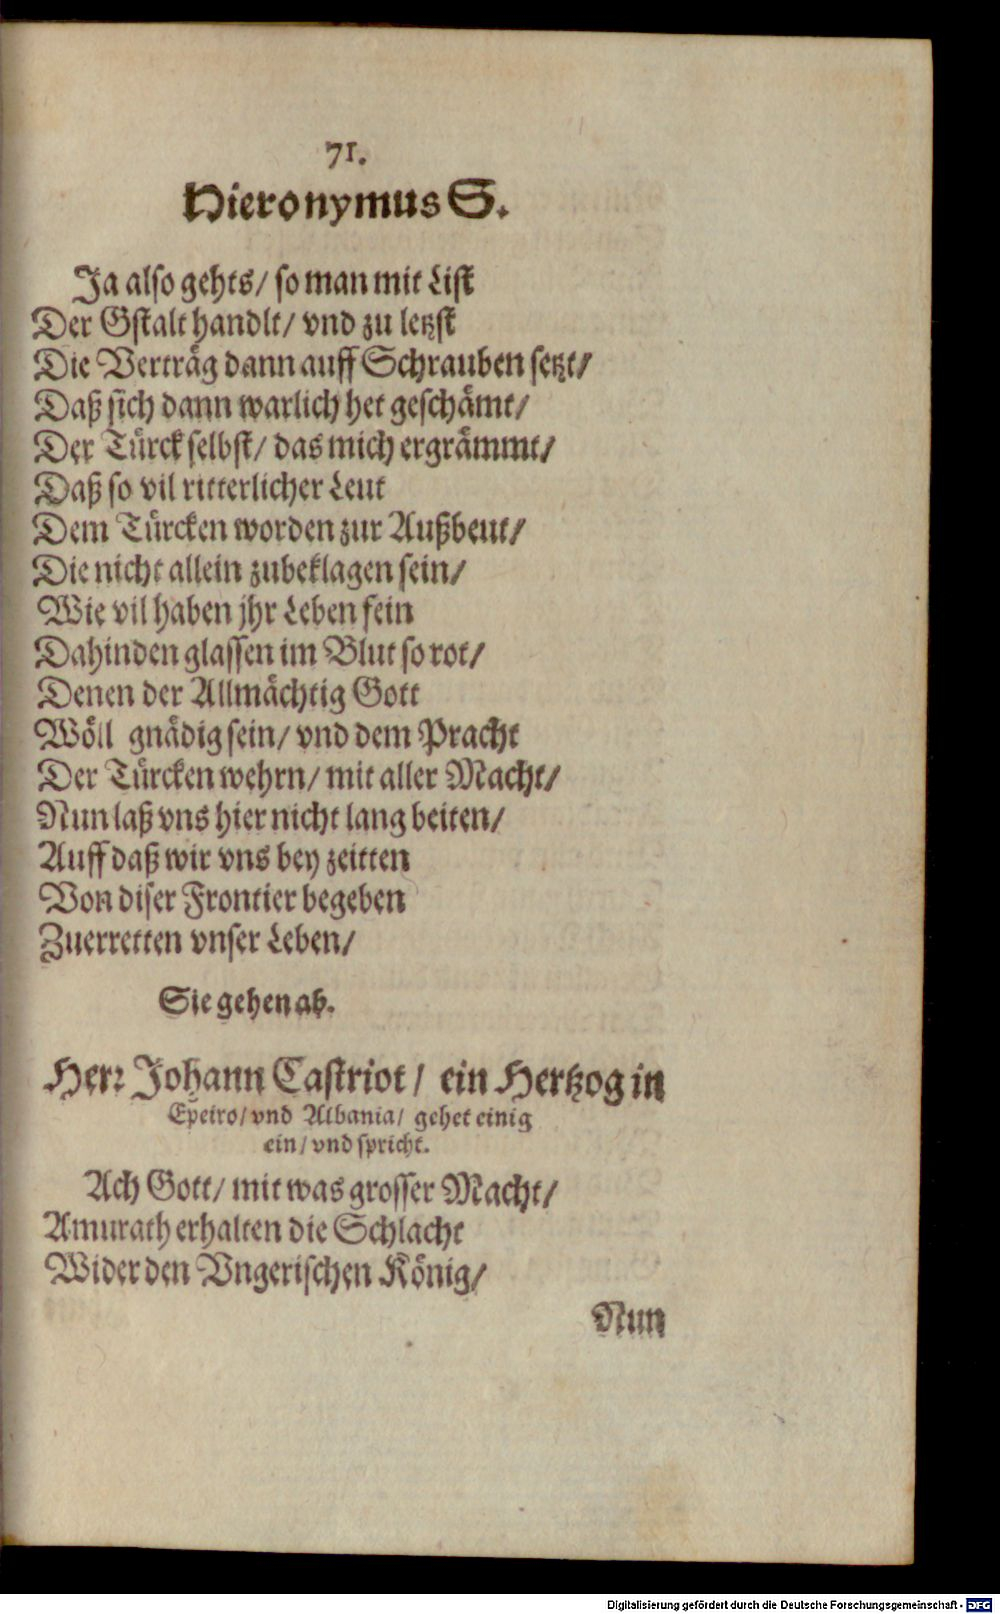 71.
Hieronymus S.
Ja also gehts/ so man mit List
Der Gstalt handlt/ vnd zu letzst
Die Verträg dann auff Schrauben setzt/
Daß sich dann warlich het geschämt/
Der Türck selbst/ das mich ergrämmt/
Daß so vil ritterlicher Leut
Dem Türcken worden zur Außbeut/
Die nicht allein zubeklagen sein/
Wie vil haben jhr Leben fein
Dahinden glassen im Blut so rot/
Denen der Allmächtig Gott
Wöll gnädig sein/ vnd dem Pracht
Der Türcken wehrn/ mit aller Macht/
Nun laß vns hier nicht lang beiten/
Auff daß wir vns bey zeitten
Von diser Frontier begeben
Zuerretten vnser Leben/
Sie gehen ab.
Herr Johann Castriot/ ein Hertzog in
Epeiro/ vnd Albania/ gehet einig
ein/ vnd spricht.
Ach Gott/ mit was grosser Macht/
Amurath erhalten die Schlacht
Wider den Vngerischen König/
Nun
Digitalisierung gefördert durch die Deutsche Forschungsgemeinschaft - DFG